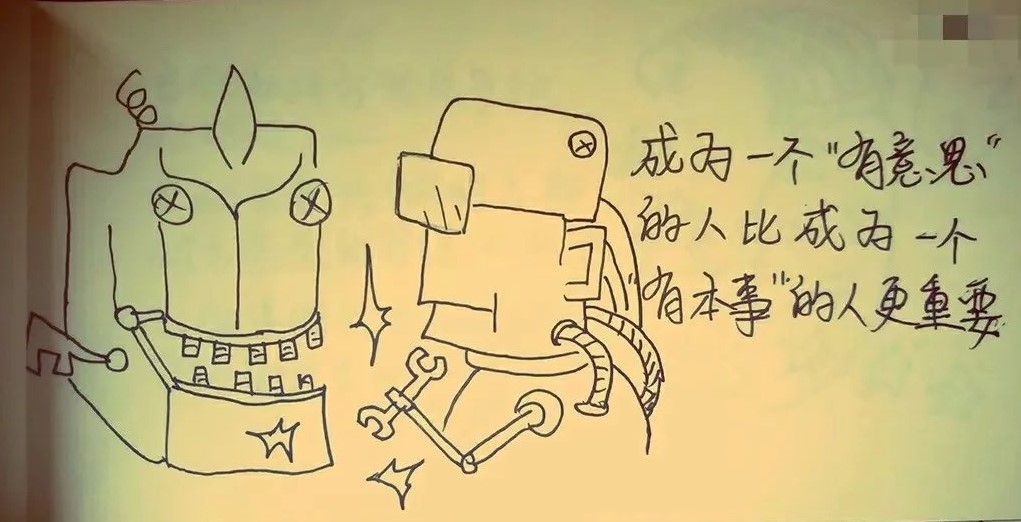 成为一个“有意思”
的人比成为一个
“有本事”的人更重要